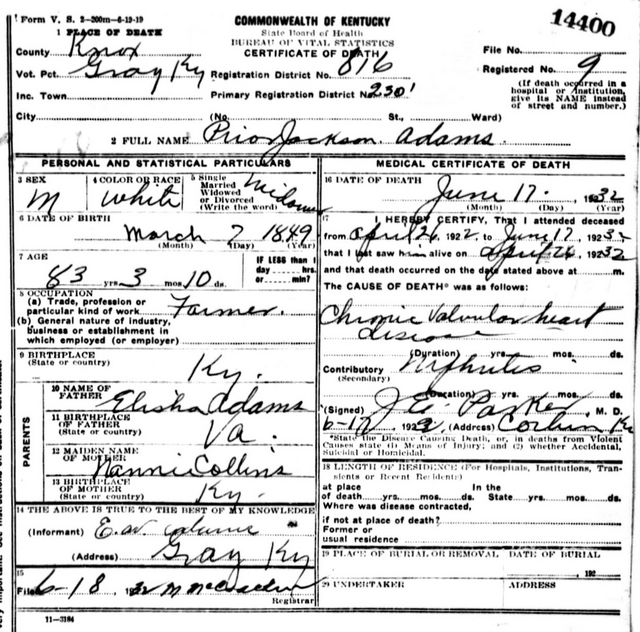 Form V. S. 2-200m-6-19-19
14400
1 PLACE OF DEATH
COMMONWEALTH OF KENTUCKY
State Board of Health
BUREAU OF VITAL STATISTICS
CERTIFICATE OF DEATH
County Knox
File No.
Vot. Pct. Gray Ky
Registration District No. 816
Registered No. 9
Inc. Town
Primary Registration District No. 2301
(If death occurred in a hospital or institution, give its NAME instead of street and number.)
City (No. St., Ward)
2 FULL NAME Prior Jackson Adams
PERSONAL AND STATISTICAL PARTICULARS
3 SEX M
4 COLOR OR RACE White
5 Single Married Widowed or Divorced (Write the word) Widower
6 DATE OF BIRTH
March 7 1849
(Month) (Day) (Year)
7 AGE
83 yrs 3 mos 10 ds.
IF LESS than 1 day hrs. or min.?
8 OCCUPATION
(a) Trade, profession or particular kind of work Farmer
(b) General nature of industry, business or establishment in which employed (or employer)
9 BIRTHPLACE
(State or country) Ky.
PARENTS
10 NAME OF FATHER Elisha Adams
11 BIRTHPLACE OF FATHER (State or country) Va.
12 MAIDEN NAME OF MOTHER Nannie Collins
13 BIRTHPLACE OF MOTHER (State or country) Ky.
14 THE ABOVE IS TRUE TO THE BEST OF MY KNOWLEDGE
(Informant) E. W.
(Address) Gray Ky
15
Filed 6-18 32
Registrar
11-3184
MEDICAL CERTIFICATE OF DEATH
16 DATE OF DEATH
June 17. 1932
(Month) (Day) (Year)
17 I HEREBY CERTIFY, That I attended deceased
from April 26, 1922, to June 17, 1932
that I last saw him alive on April 26, 1932
and that death occurred on the date stated above at m.
The CAUSE OF DEATH* was as follows:
Chronic Valvular heart
disease
(Duration) yrs. mos. ds.
Contributory Nephritis
(Secondary)
(Duration) yrs. mos. ds.
(Signed) J E Parker, M. D.
6-17 192 (Address) Corbin Ky
*State the Disease Causing Death, or, in deaths from Violent Causes state (1) Means of Injury; and (2) whether Accidental, Suicidal or Homicidal.
18 LENGTH OF RESIDENCE (For Hospitals, Institutions, Transients or Recent Residents)
at place of death yrs. mos. ds. In the State yrs. mos. ds.
Where was disease contracted,
if not at place of death?
Former or
usual residence
19 PLACE OF BURIAL OR REMOVAL DATE OF BURIAL
192
20 UNDERTAKER ADDRESS